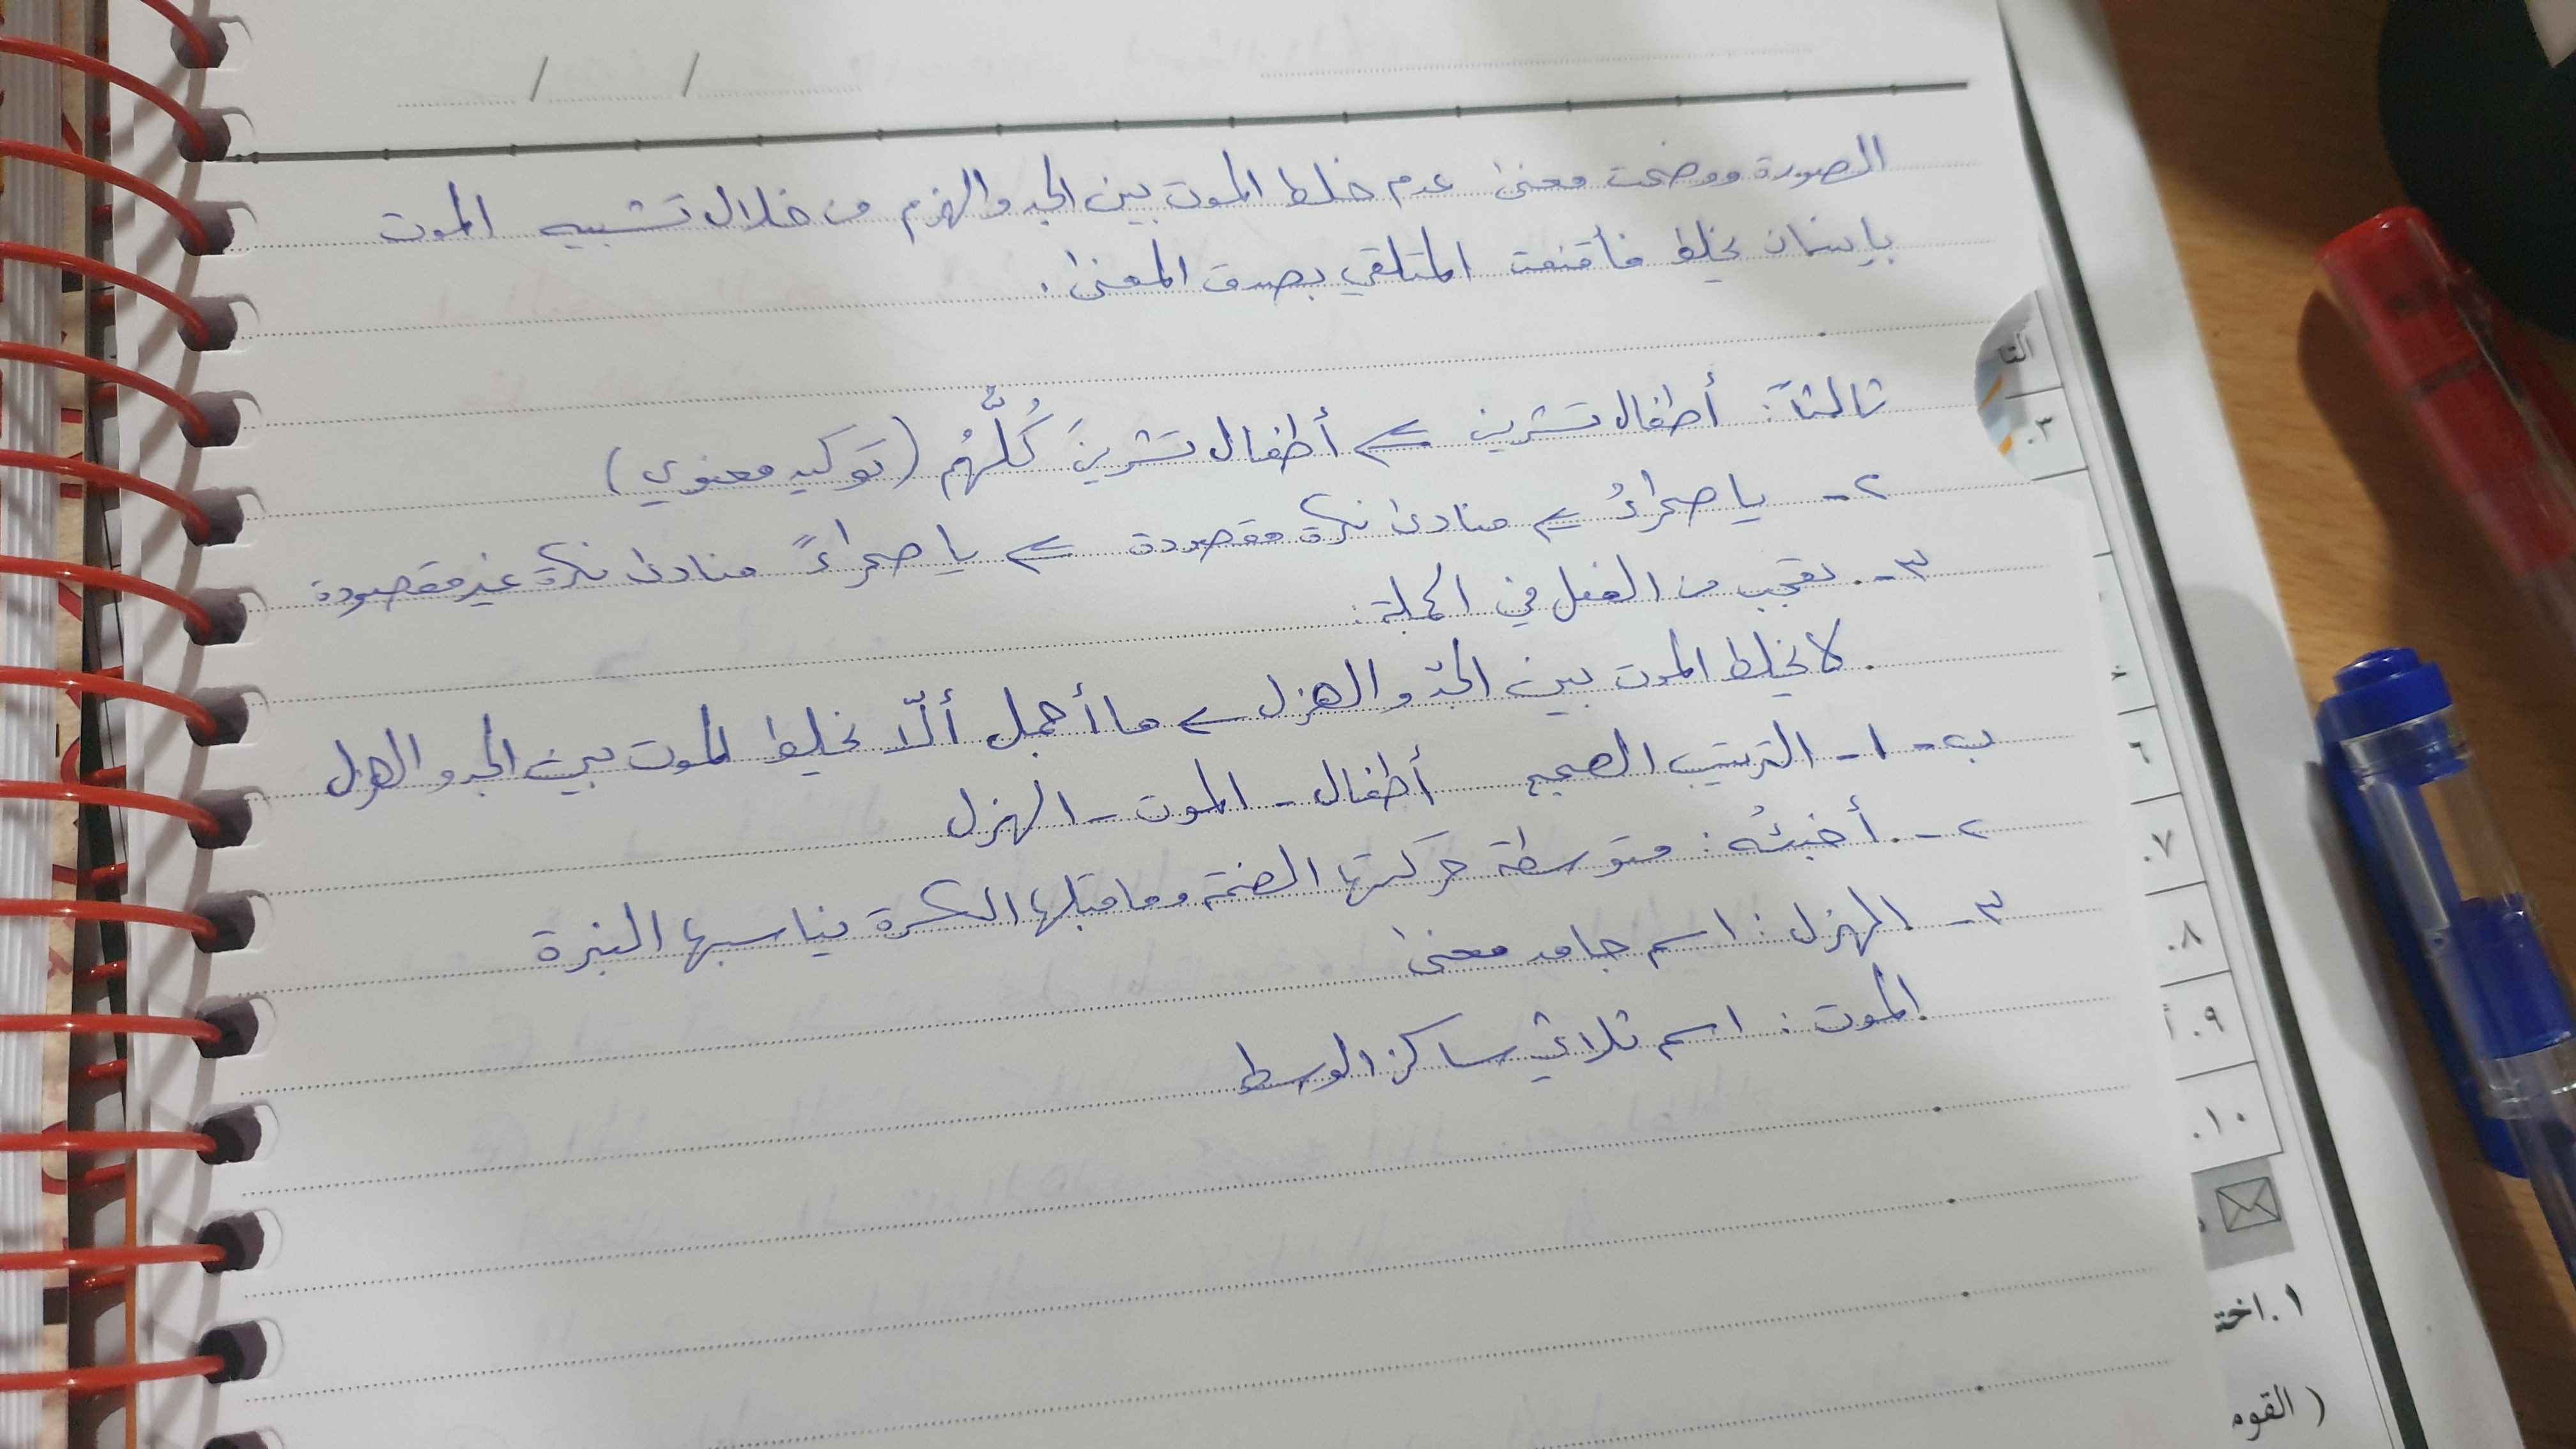 / /
الصورة ووضحت معنى عدم خلط الموت بين الجد والهزم من خلال تشبيه الموت
بإنسان يخلط فأقنعت المتلقي بصدق المعنى.
ثالثاً: أطفال تشرين <= أطفال تشرينَ كُلُّهُم (توكيد معنوي)
٢- يا صحراءُ <= منادى نكرة مقصودة <= يا صحراءً منادى نكرة غير مقصودة
٣- تعجب من الفعل في الجملة:
لا يخلط الموت بين الجدّ والهزل <= ما أجمل ألّا يخلط الموت بين الجد والهزل
ب- ١- الترتيب الصحيح أطفال - الموت - الهزل
٢- أخبئُه: متوسطة حركتها الضمة وما قبلها الكسرة يناسبها النبرة
٣- الهزل: اسم جامد معنى
الموت: اسم ثلاثي ساكن الوسط
التا
٣.
٦
٧.
٨.
٩. أ
١٠.
١. اختـ
( القوم